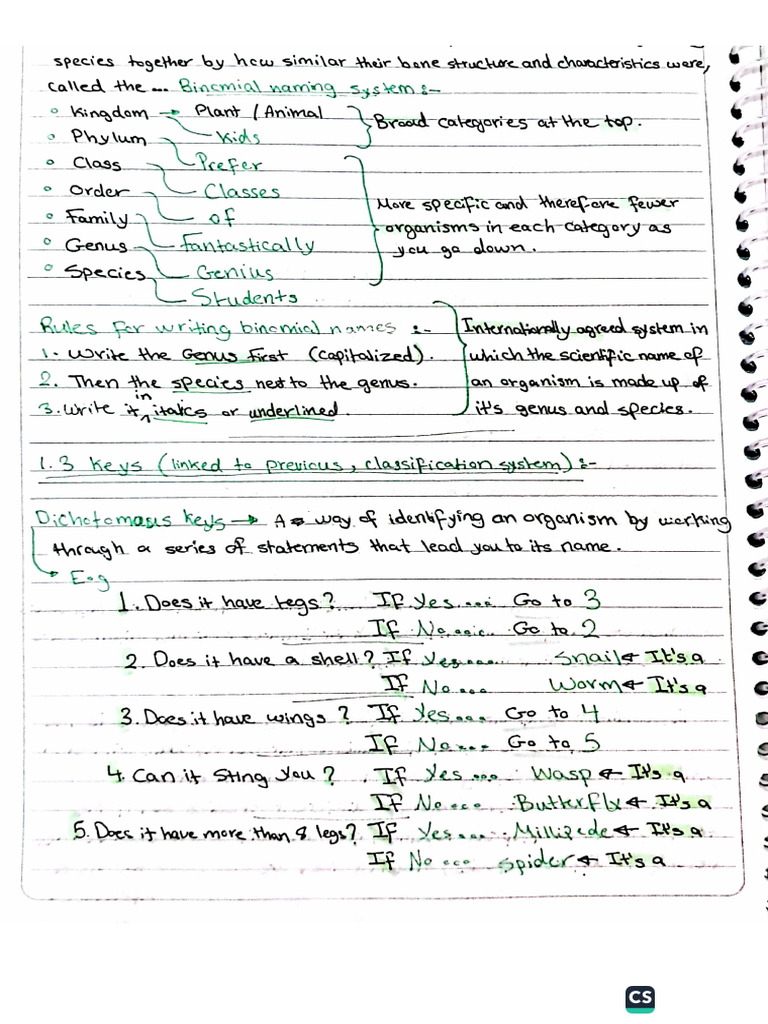 species together by how similar their bone structure and characteristics were,
called the ... Binomial naming system :-
Kingdom → Plant / Animal
Kids
Broad categories at the top.
Phylum
Prefer
Class
Classes
Order
of
Family
Fantastically
Genus
Genius
Species
Students
More specific and therefore fewer
organisms in each category as
you go down.
Rules for writing binomial names :-
1. Write the Genus first (capitalized).
2. Then the species next to the genus.
3. Write it in italics or underlined.
Internationally agreed system in
which the scientific name of
an organism is made up of
it's genus and species.
1.3 Keys (linked to previous, classification system) :-
Dichotomous keys → A way of identifying an organism by working
through a series of statements that lead you to its name.
→ E.g
1. Does it have legs? If Yes.... Go to 3
If No.... Go to 2
2. Does it have a shell? If Yes.... Snail ← It's a
If No... Worm ← It's a
3. Does it have wings? If Yes... Go to 4
If No... Go to 5
4. Can it sting you? If Yes ... Wasp ← It's a
If No ... Butterfly ← It's a
5. Does it have more than 8 legs? If Yes.... Millipede ← It's a
If No ... Spider ← It's a
CS